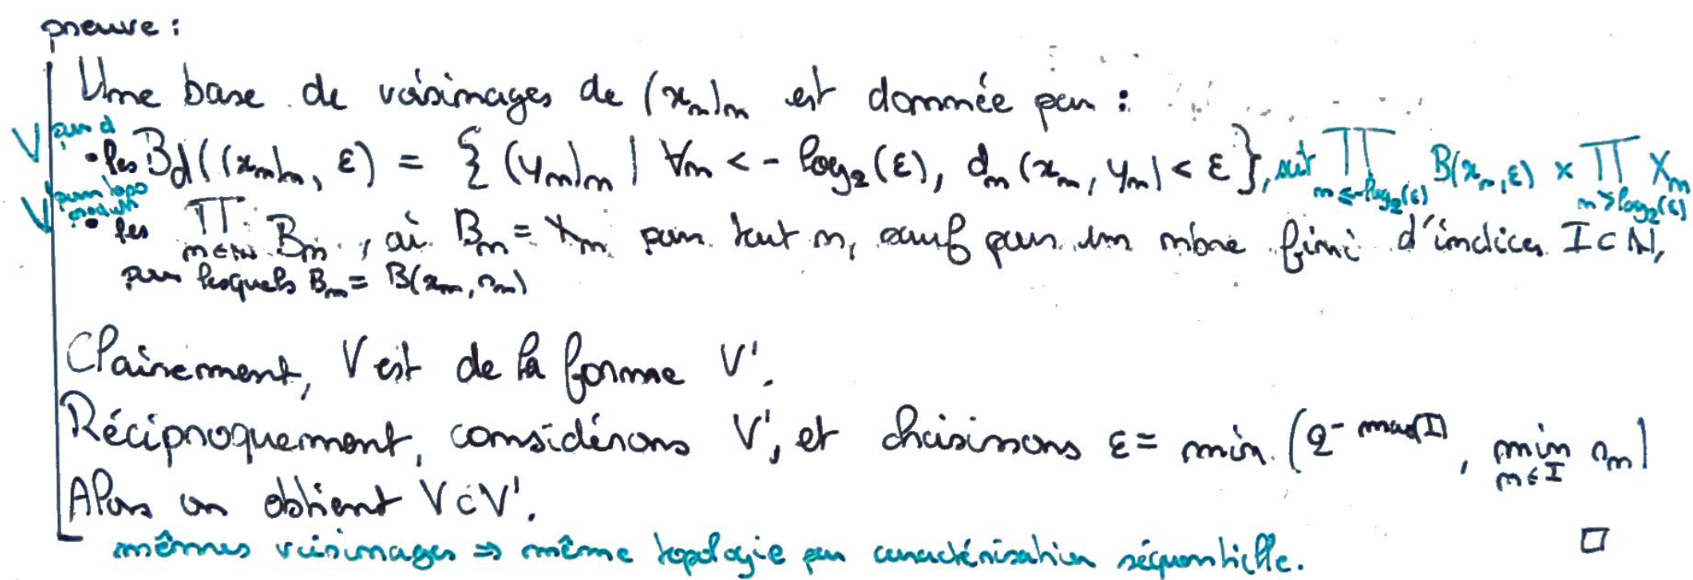 preuve :
Une base de voisinages de (xₙ)ₙ est donnée par :
V pour d
• les B_d((xₙ)ₙ, ε) = { (yₙ)ₙ | ∀n < - log₂(ε), dₙ(xₙ, yₙ) < ε }, soit ∏_{n ≤ -log₂(ε)} B(xₙ, ε) × ∏_{n > log₂(ε)} Xₙ
V' pour topo produit
• les ∏_{n∈ℕ} Bₙ, où Bₙ = Xₙ pour tout n, sauf pour un nbre fini d'indices I ⊂ ℕ,
pour lesquels Bₙ = B(xₙ, rₙ)
Clairement, V est de la forme V'.
Réciproquement, considérons V', et choisissons ε = min (2^{- max(I)}, min_{n∈I} rₙ)
Alors on obtient V ⊂ V'.
mêmes voisinages ⇒ même topologie par caractérisation séquentielle. □